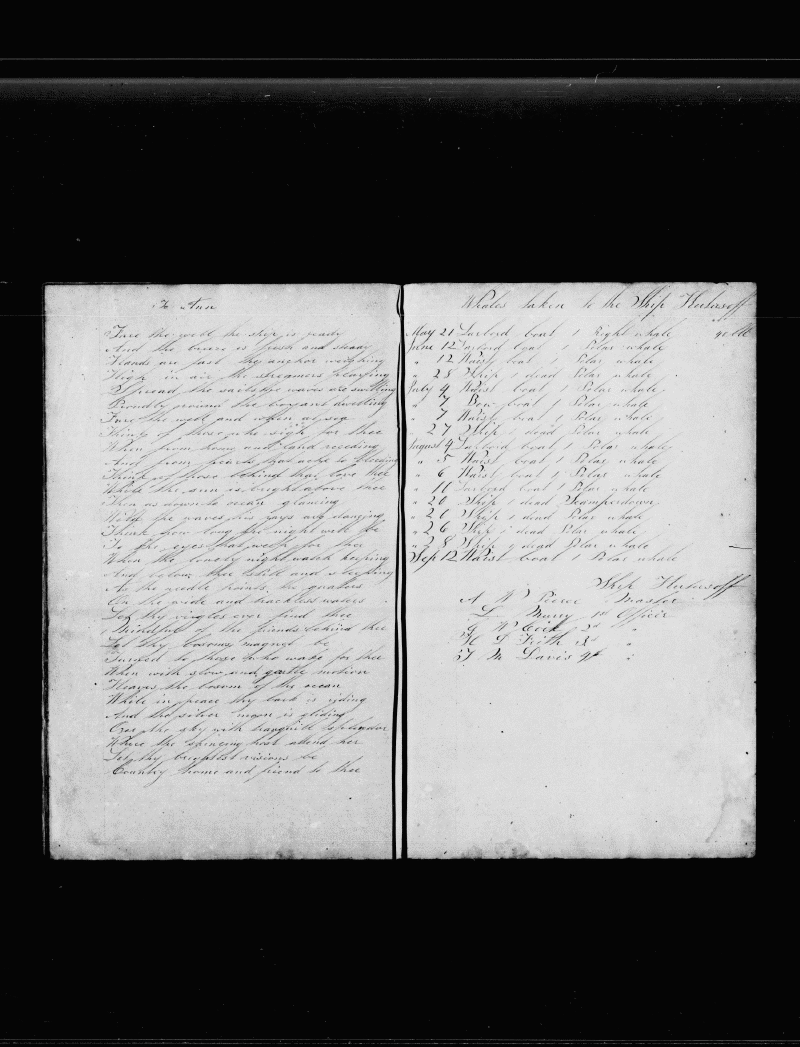 To Ann
Fare the well the ship is ready
And the breeze is fresh and steady
Hands are fast the anchor weighing
High in air the streamers playing
Spread the sails the waves are swelling
Proudly round the boyant dwelling
Fare the well and when at sea
Think of those who sigh for thee
When from home and land receding
And from hearts that ache to bleeding
Think of those behind that love thee
While the sun is bright above thee
Then as down to ocean glancing
With the waves his rays are dancing
Think how long the night will be
To the eyes that weep for thee
When the lonely night watch keeping
And below thee still and sleeping
As the needle points the quarters
On the wide and trackless waters
Let thy vigles ever find thee
Mindful of the friends behind thee
Let thy bosoms magnet be
Turned to those who wake for thee
When with slow and gentle motion
Heaves the bosom of the ocean
While in peace thy bark is riding
And the silver moon is gliding
Over the sky with tranquill splendor
Where the shining host attend her
Let thy brightest visions be
Country home and friend to thee
Whales taken to the Ship Hubersoff
May 21 Larbord boat 1 Right whale 90 bbl
June 12 Larbord boat 1 Polar whale
" 12 Waist boat 1 Polar whale
" 28 Ship 1 dead Polar whale
July 4 Waist boat 1 Polar whale
" 7 Bow boat 1 Polar whale
" 7 Waist boat 1 Polar whale
" 27 Ship 1 dead Polar whale
August 4 Larbord boat 1 Polar whale
" 5 Waist boat 1 Polar whale
" 6 Waist boat 1 Polar whale
" 11 Larbord boat 1 Polar whale
" 20 Ship 1 dead Scamperdown
" 21 Ship 1 dead Polar whale
" 26 Ship 1 dead Polar whale
" 28 Ship 1 dead Polar whale
Sep 12 Waist boat 1 Polar whale
Ship Hubersoff
A W Pierce Master
L Mury 1st Officer
G W Cook 2d "
H D Frith 3d "
T M Davis 4th "